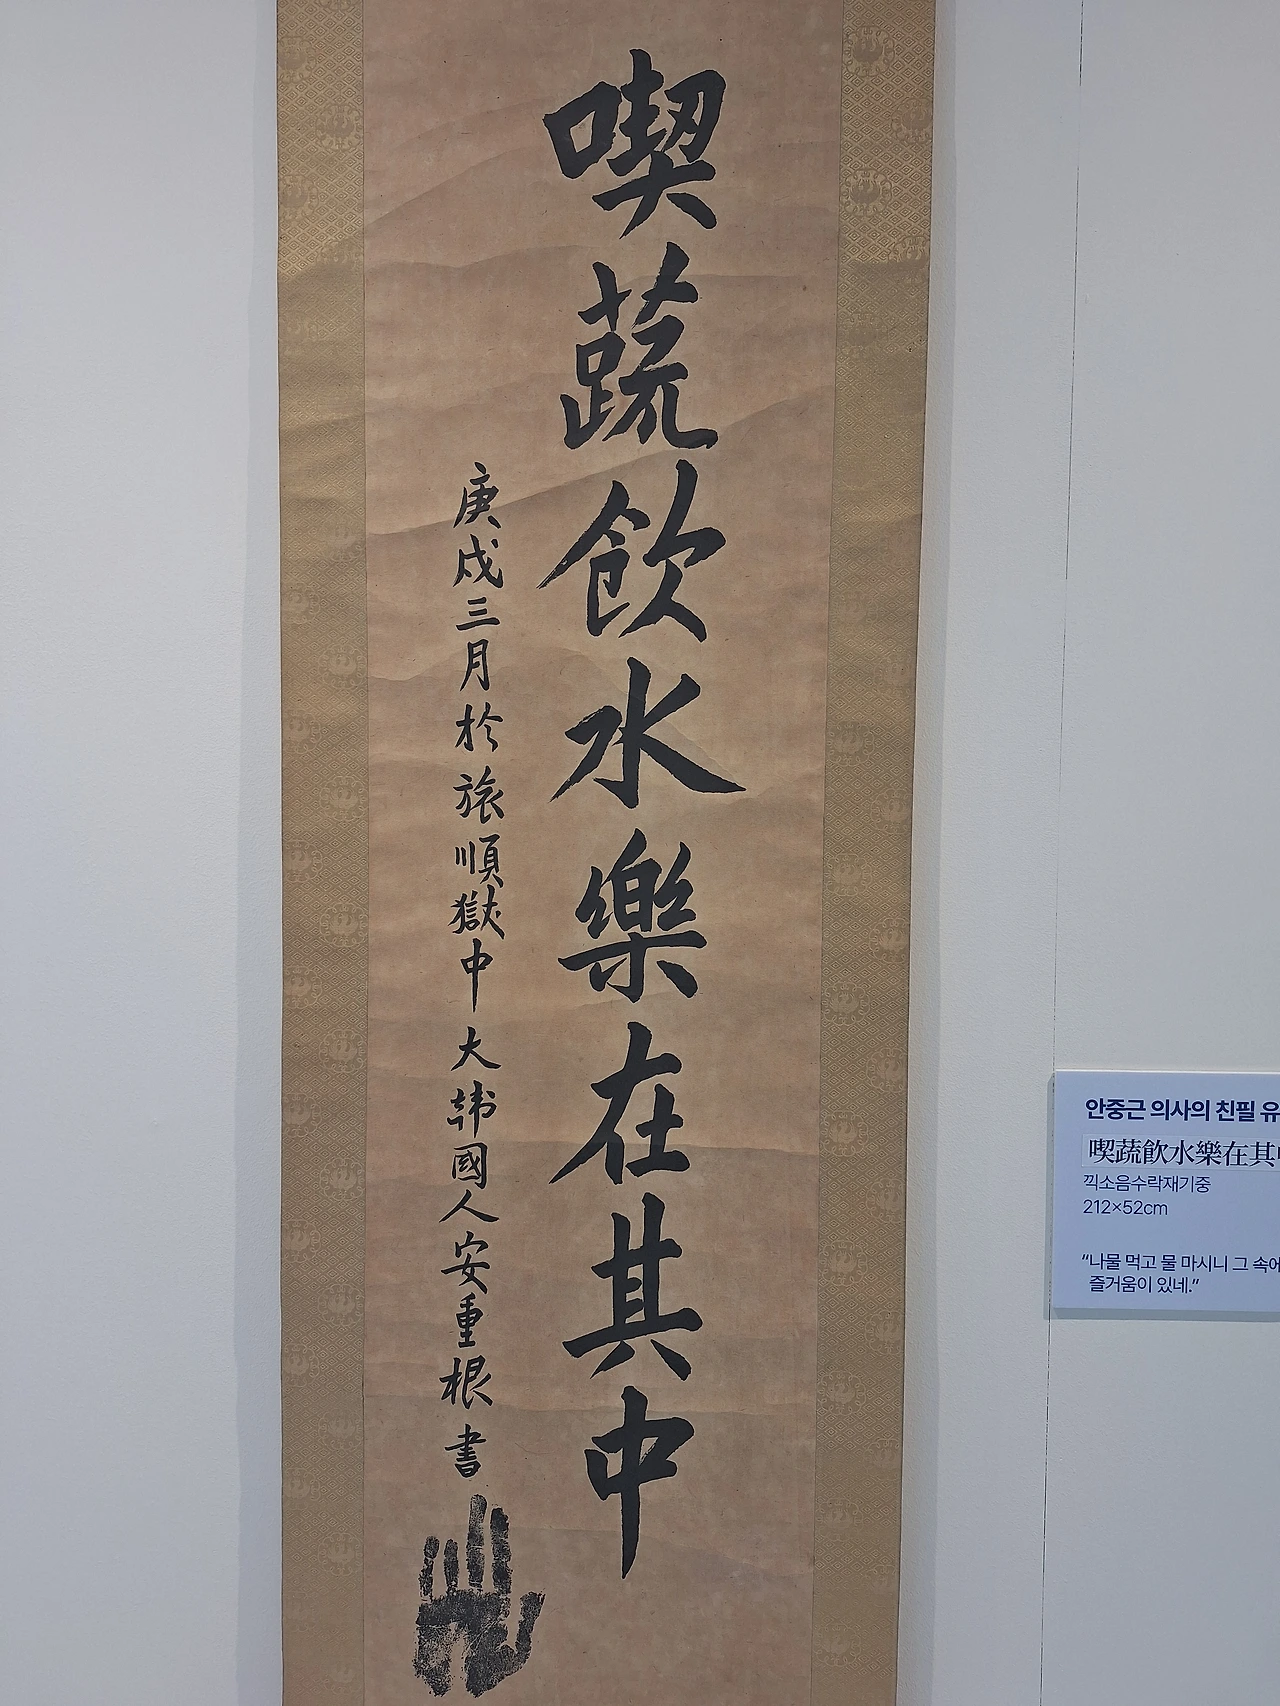 喫蔬飮水樂在其中
庚戌三月於旅順獄中大韓國人安重根書
안중근 의사의 친필 유
喫蔬飮水樂在其
끽소음수락재기중
212×52cm
“나물 먹고 물 마시니 그 속에
즐거움이 있네.”